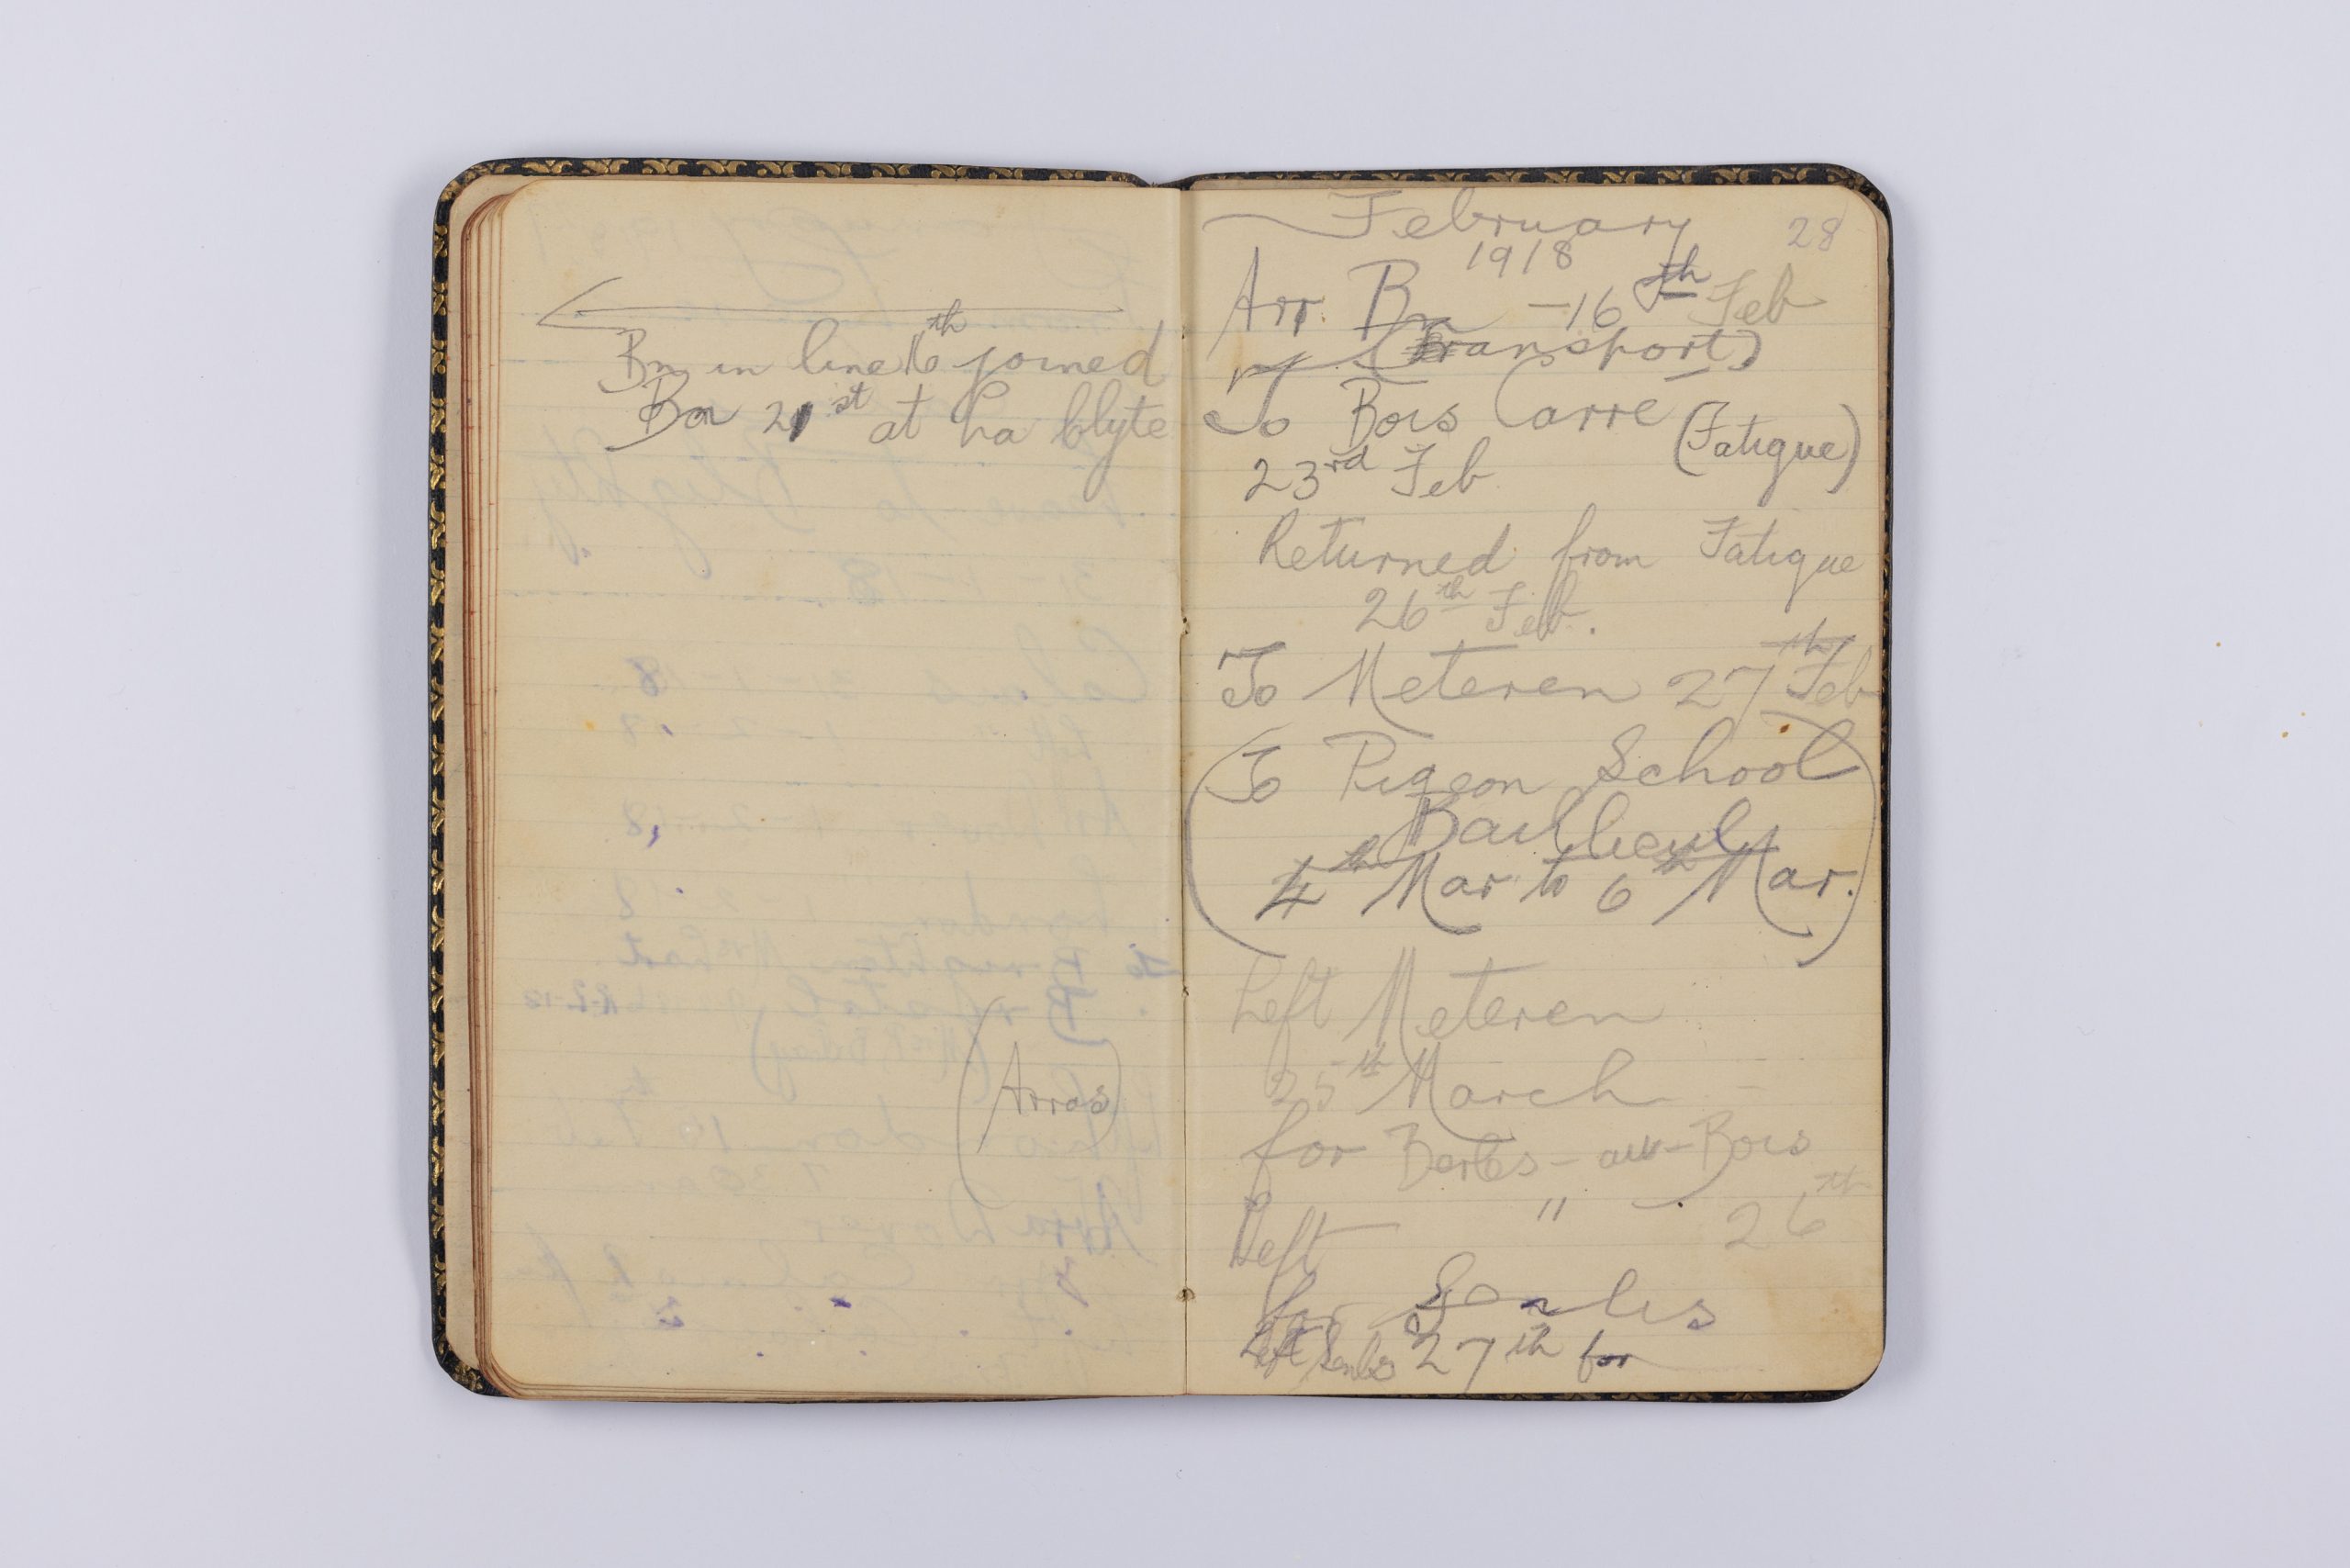 Bn in line 16th joined
Bn 21st at La Clyte
(Arras)
February
28
1918
Arr. Bn - 16th Feb
(Transport)
To Bois Carre
(Fatigue)
23rd Feb
Returned from Fatigue
26th Feb.
To Meteren 27th Feb
(To Pigeon School
Bailleul
4th Mar to 6th Mar.)
Left Meteren
25th March
for Berles-au-Bois
Left " 26th
for Senlis
Left Senlis 27th for